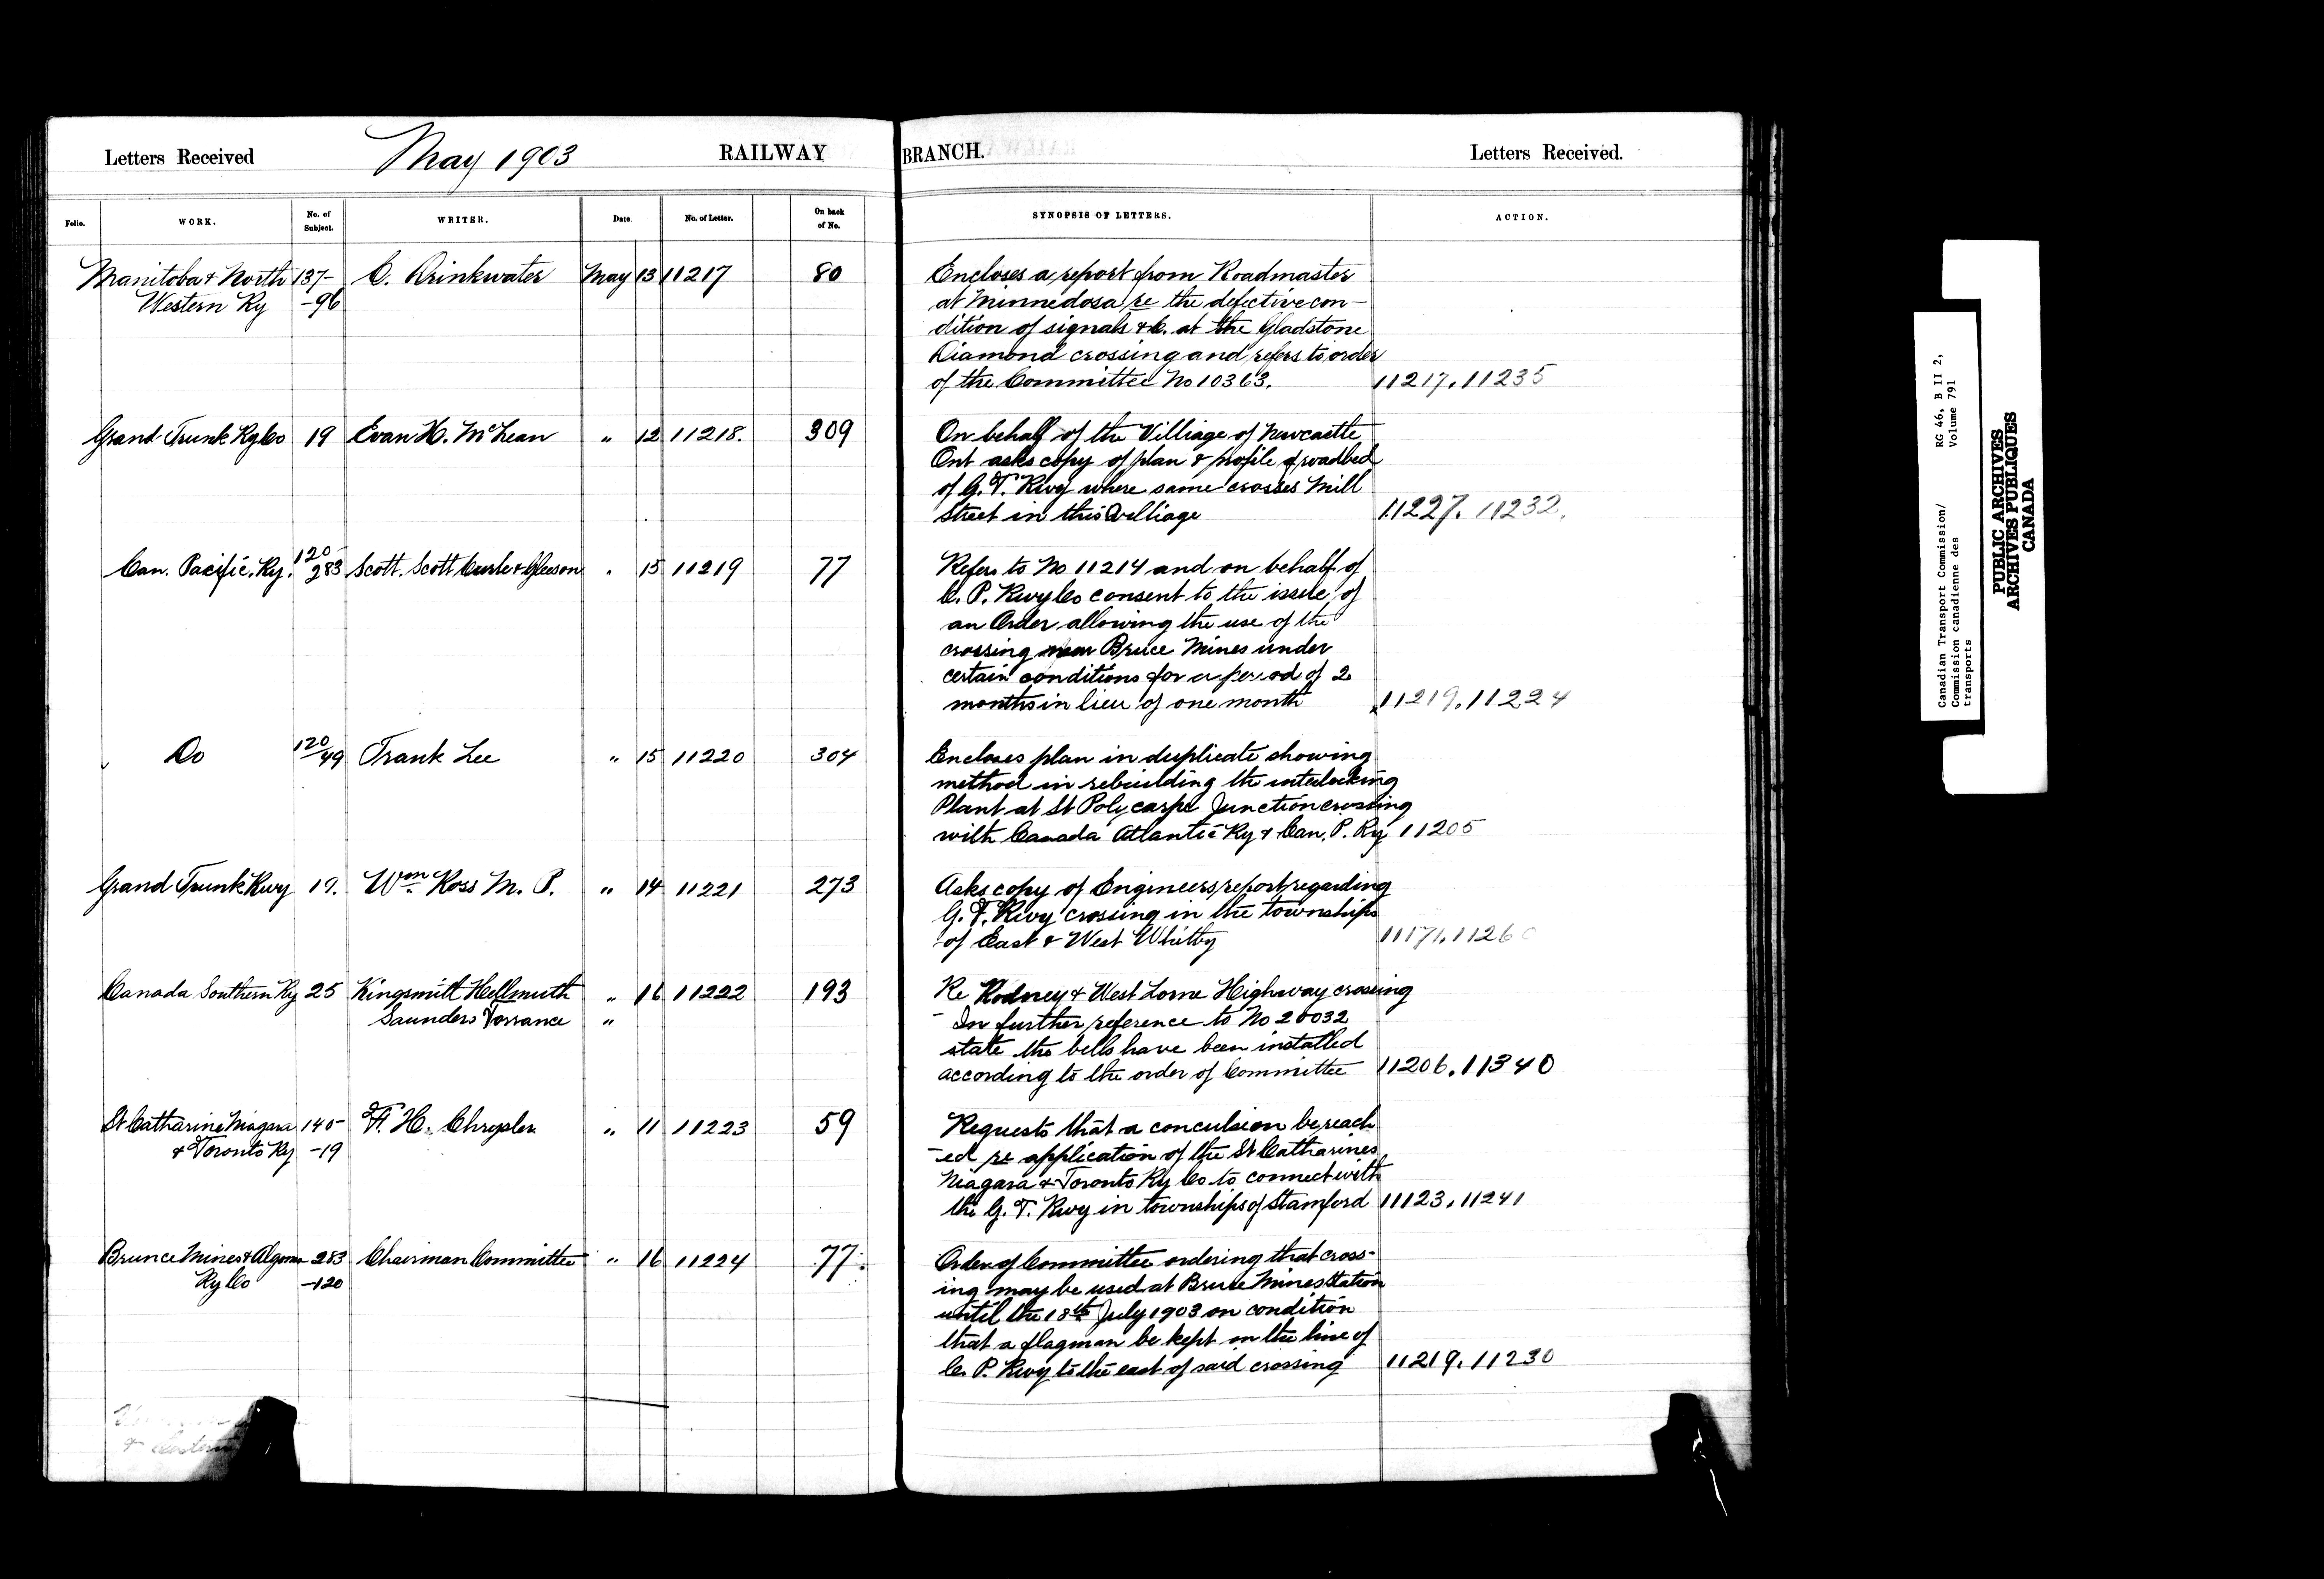 Letters Received May 1903 RAILWAY BRANCH. Letters Received.
Folio. WORK. No. of Subject. WRITER. Date. No. of Letter. On back of No. SYNOPSIS OF LETTERS. ACTION.
Manitoba & North 137- C. Drinkwater May 13 11217 80 Encloses a report from Roadmaster
Western Ry -96 at Minnedosa re the defective con-
dition of signals &c. at the Gladstone
Diamond crossing and refers to order
of the Committee No 10363. 11217. 11235
Grand Trunk Ry Co 19 Evan H. McLean " 12 11218. 309 On behalf of the Villiage of Newcastle
Ont asks copy of plan & profile of roadbed
of G. T. Rwy where same crosses Mill
Street in this villiage 11227. 11232.
Can. Pacific. Ry. 120- 283 Scott. Scott Curle & Gleeson " 15 11219 77 Refers to No 11214 and on behalf of
C. P. Rwy Co consent to the issue of
an Order allowing the use of the
crossing near Bruce Mines under
certain conditions for a period of 2
months in lieu of one month 11219. 11224
Do 120/49 Frank Lee " 15 11220 304 Encloses plan in duplicate showing
method in rebuilding the interlocking
Plant at St Polycarpe Junction crossing
with Canada Atlantic Ry & Can. P. Ry 11205
Grand Trunk Rwy 19. Wm Ross M. P. " 14 11221 273 Asks copy of Engineers report regarding
G. T. Rwy crossing in the townships
of East & West Whitby 11171. 11260
Canada Southern Ry 25 Kingsmill Hellmuth " 16 11222 193 Re Rodney & West Lorne Highway crossing
Saunders Torrance " - In further reference to No 20032
state the bells have been installed
according to the order of Committee 11206. 11340
St Catharine Niagara 140- F. H. Chrysler " 11 11223 59 Requests that a conculsion be reach
& Toronto Ry -19 -ed re application of the St Catharines
Niagara & Toronto Ry Co to connect with
the G. T. Rwy in townships of Stamford 11123. 11241
Brunce Mines & Algoma 283 Chairman Committee " 16 11224 77. Order of Committee ordering that cross-
Ry Co -120 ing may be used at Bruce Mines Station
until the 18th July 1903 on condition
that a flagman be kept on the line of
C. P. Rwy to the east of said crossing 11219. 11230
Canadian Transport Commission/ RG 46, B II 2,
Commission canadienne des Volume 791
transports
PUBLIC ARCHIVES
ARCHIVES PUBLIQUES
CANADA